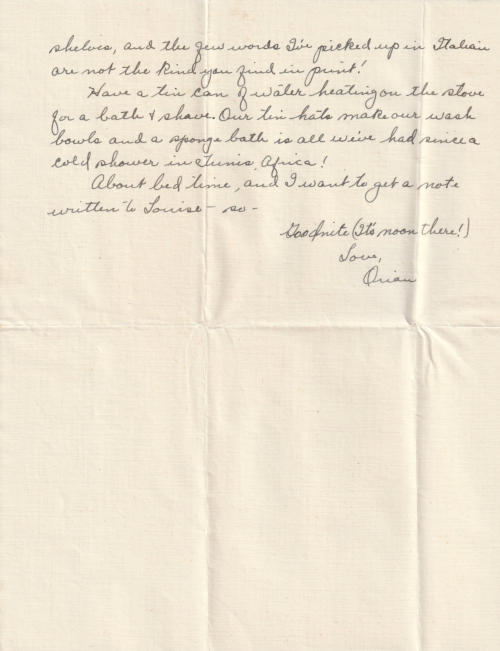 shelves, and the few words I've picked up in Italian
are not the kind you find in print!
Have a tin can of water heating on the stove
for a bath & shave. Our tin hats make our wash
bowls and a sponge bath is all we've had since a
cold shower in Tunis, Africa!
About bed time, and I want to get a note
written to Louise — so —
Goodnite (It's noon there!)
Love,
Orian